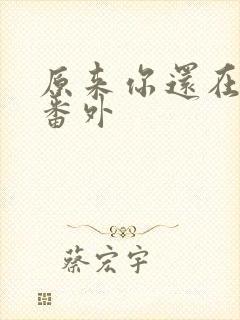 原来你還在
番外
蔡宏宇